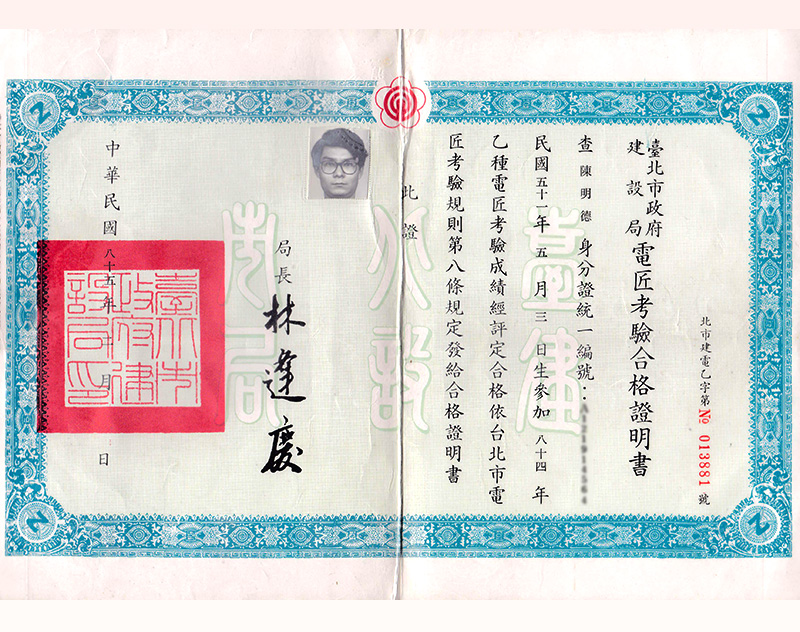 北市建電乙字第No 013881號
臺北市政府建設局電匠考驗合格證明書
查陳明德身分證統一編號：
民國五十一年五月三日生參加八十四年
乙種電匠考驗成績經評定合格依台北市電
匠考驗規則第八條規定發給合格證明書
此證
局長林逢慶
中華民國八十五年 月 日
臺北市
政府建
設局印